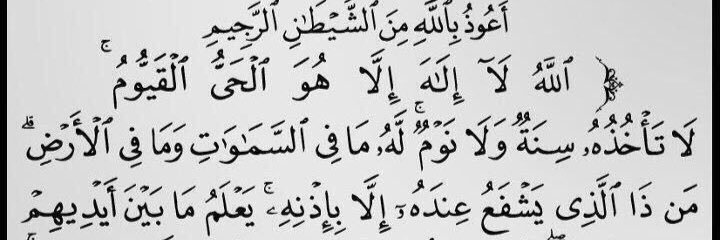 أَعُوذُ بِاللَّهِ مِنَ الشَّيْطَانِ الرَّجِيمِ
﴿ ٱللَّهُ لَآ إِلَـٰهَ إِلَّا هُوَ ٱلْحَىُّ ٱلْقَيُّومُ ۚ
لَا تَأْخُذُهُۥ سِنَةٌ وَلَا نَوْمٌ ۚ لَّهُۥ مَا فِى ٱلسَّمَـٰوَٰتِ وَمَا فِى ٱلْأَرْضِ ۗ
مَن ذَا ٱلَّذِى يَشْفَعُ عِندَهُۥٓ إِلَّا بِإِذْنِهِۦ ۚ يَعْلَمُ مَا بَيْنَ أَيْدِيهِمْ